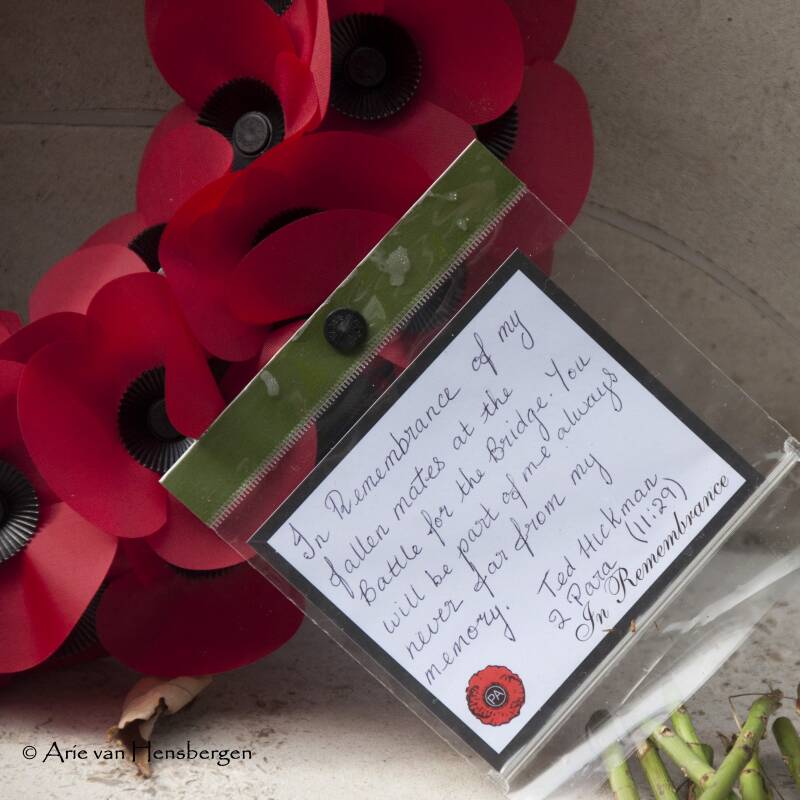 In Remembrance of my
fallen mates at the
Battle for the Bridge. You
will be part of me always
never far from my
memory. Ted Hickman
2 Para (11:29)
In Remembrance
PA
© Arie van Hensbergen